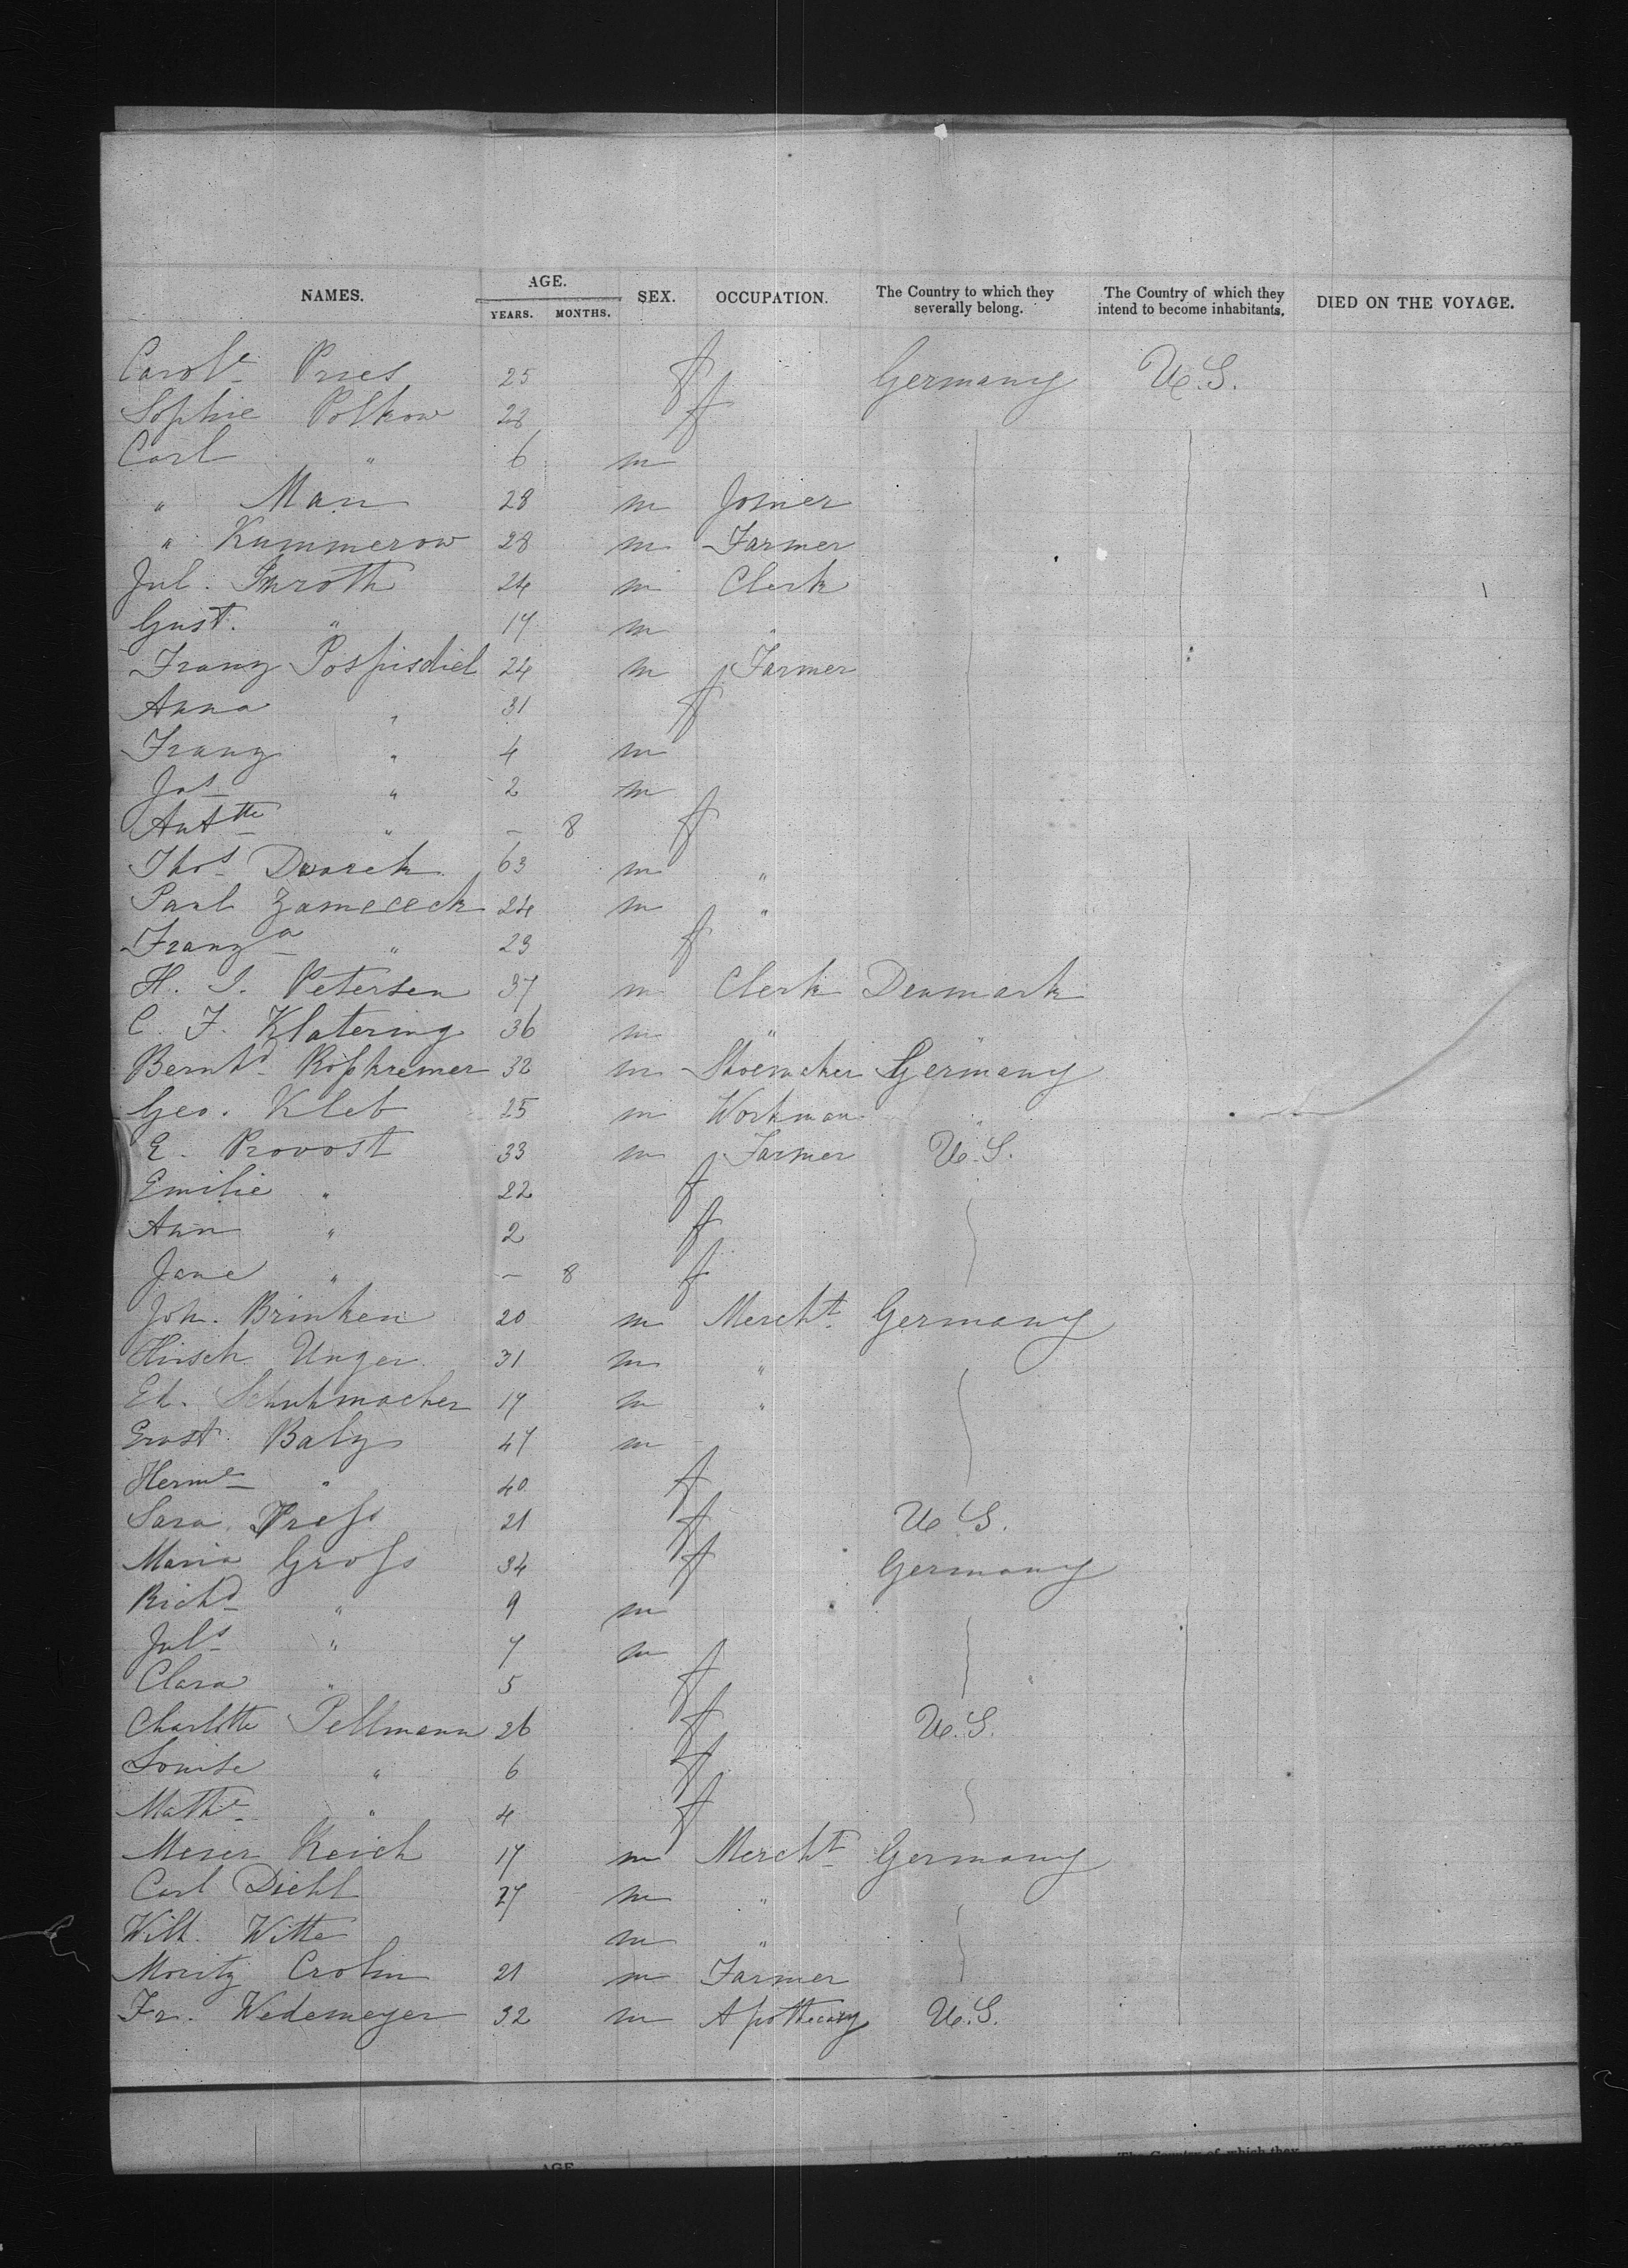 NAMES. AGE. YEARS. MONTHS. SEX. OCCUPATION. The Country to which they severally belong. The Country of which they intend to become inhabitants. DIED ON THE VOYAGE.
Carole Pries 25 f Germany U.S.
Sophie Polkow 28 f
Carl " 6 m
" Man 28 m Joiner
" Kummerow 28 m Farmer
Jul. Imroth 24 m Clerk
Gust. " 17 m "
Franz Pospisdiel 24 m Farmer
Anna " 31 f
Franz " 4 m
Jos " 2 m
Anttte " – 8 f
Thos Dworck 63 m "
Paul Zamececk 24 m "
Franza " 23 f
H. J. Petersen 37 m Clerk Denmark
C. F. Klatering 36 m " "
Bernhd Roßkremer 32 m Shoemaker Germany
Geo. Kleb 25 m Workman "
E. Provost 33 m Farmer U.S.
Emilie " 22 f
Ann " 2 f
Jane " – 8 f
Joh. Brinken 20 m Mercht Germany
Hirsch Unger 31 m "
Ed. Schuhmacher 17 m "
Ernst Balz 47 m
Herme " 40 f
Sara Preß 21 f U.S.
Maria Groß 34 f Germany
Richd " 9 m
Juls " 7 m
Clara " 5 f
Charlotte Pellmann 26 f U.S.
Louise " 6 f
Mathe " 4 f
Meier Reich 17 m Mercht Germany
Carl Diehl 27 m "
Wilh. Witte m "
Moritz Crohn 21 m Farmer
Fr. Wedemeyer 32 m Apothecary U.S.
AGE The Country of which they